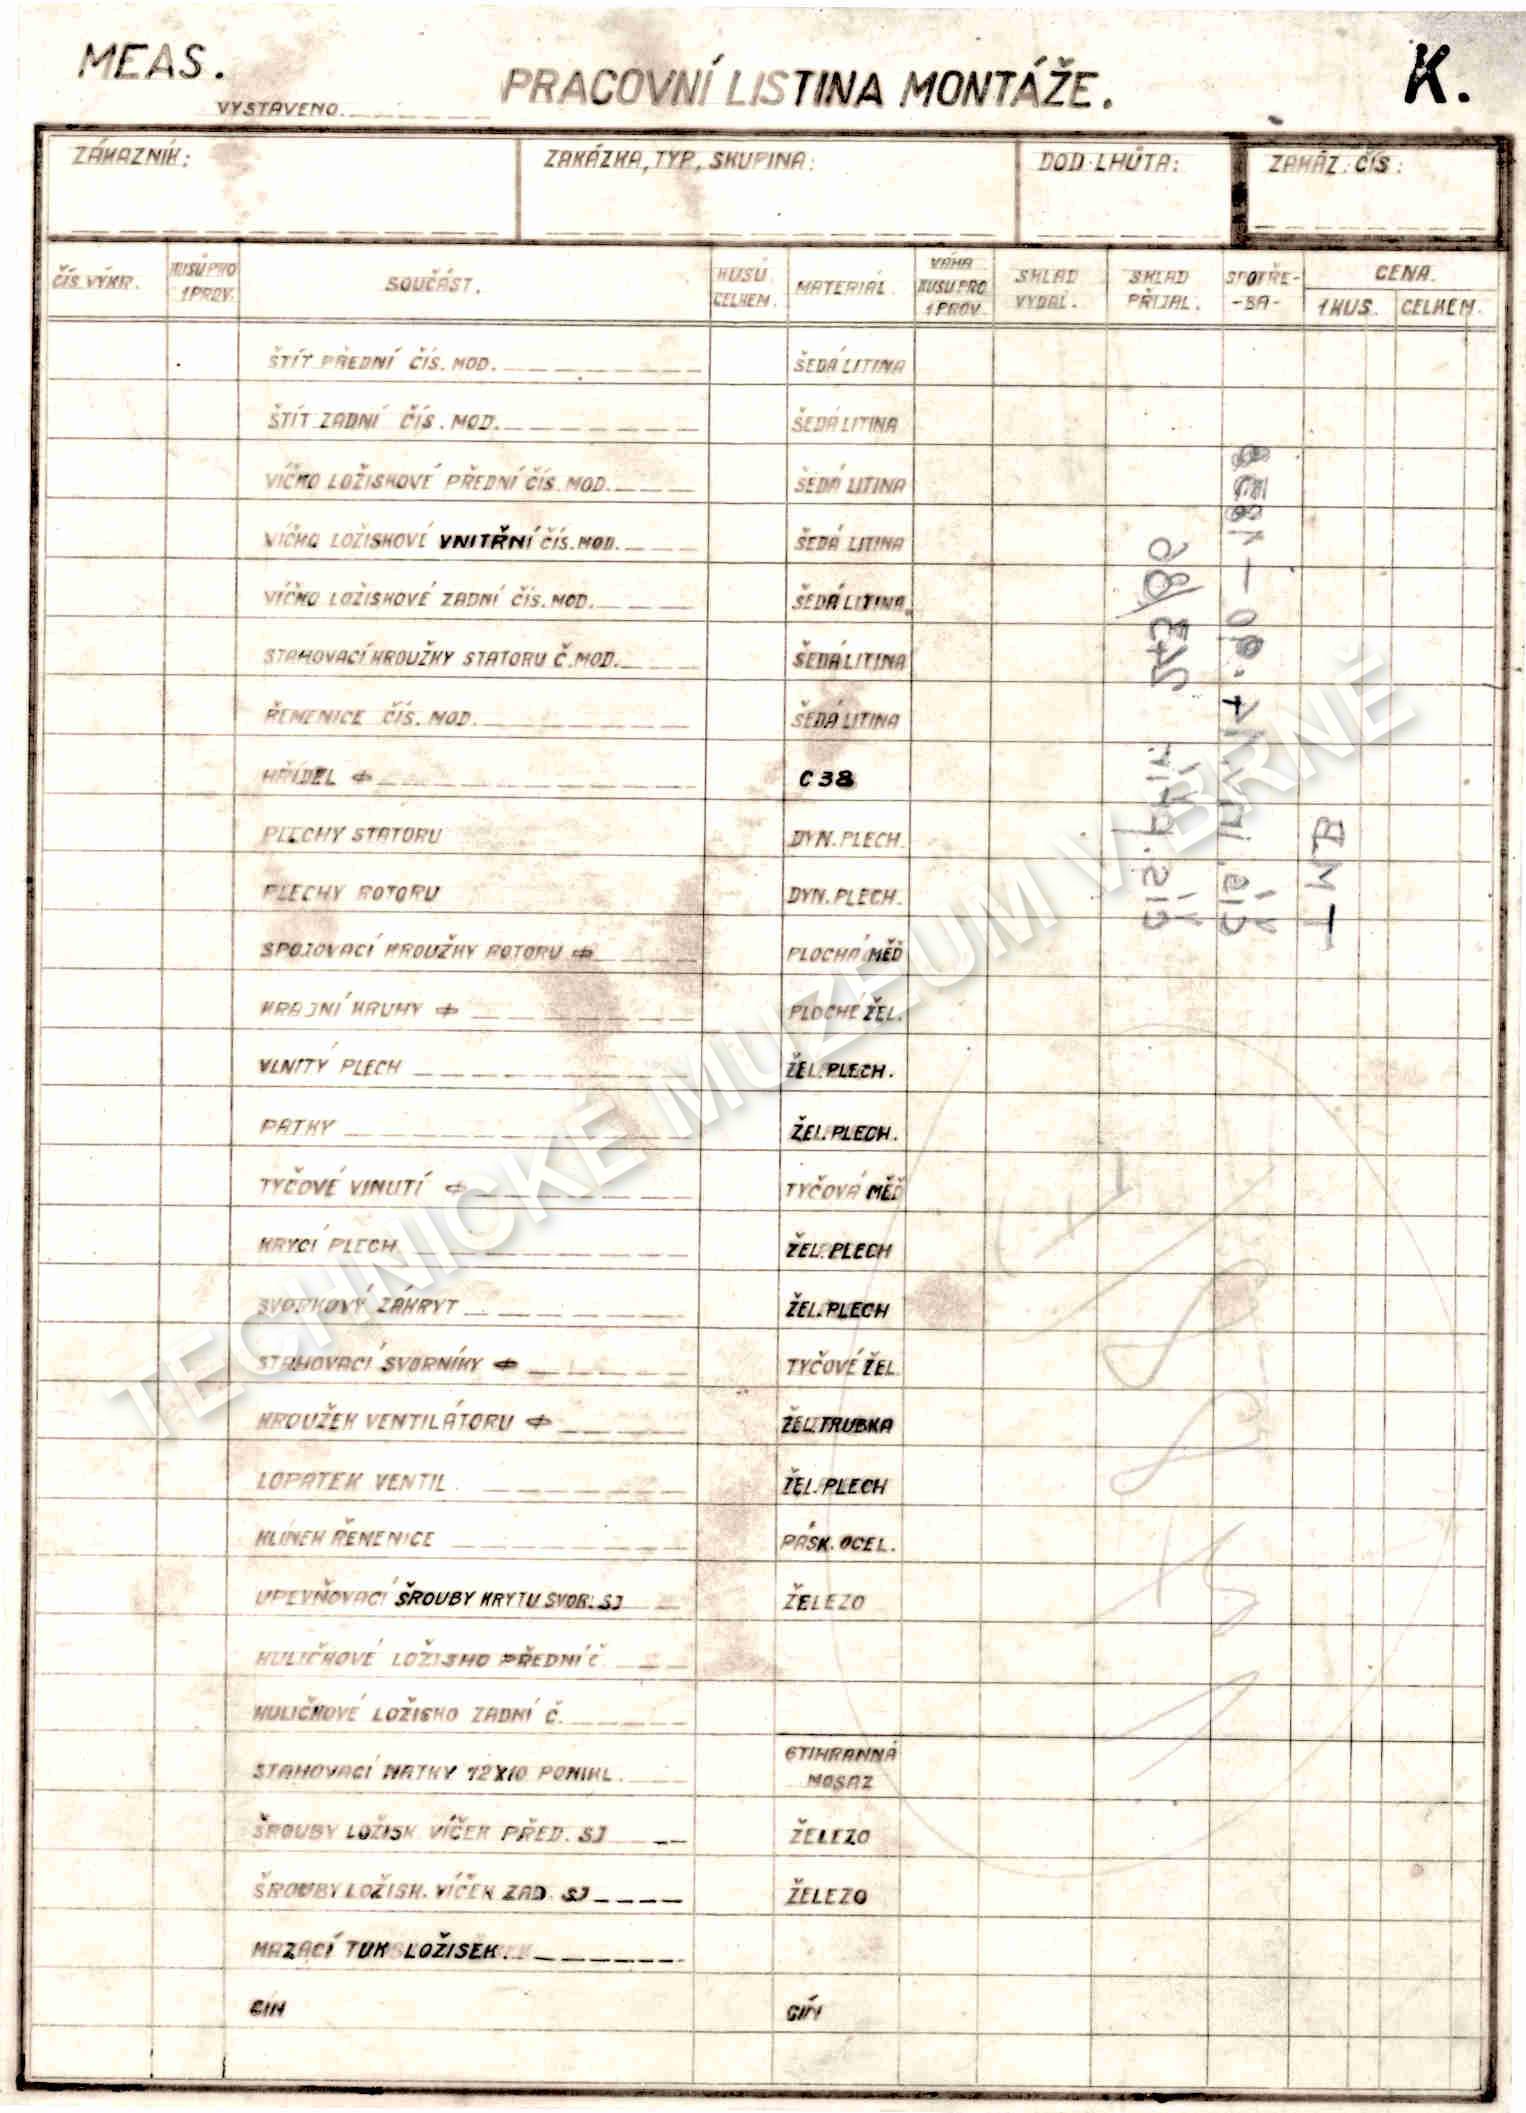 MEAS.
PRACOVNÍ LISTINA MONTÁŽE.
K.
VYSTAVENO.
ZÁKAZNÍK:
ZAKÁZKA, TYP, SKUPINA:
DOD. LHŮTA:
ZAKÁZ. ČÍS:
ČÍS. VÝKR.
KUSŮ PRO 1 PROV.
SOUČÁST.
KUSŮ CELKEM.
MATERIÁL.
VÁHA KUSU PRO 1 PROV.
SKLAD VYDAL.
SKLAD PŘIJAL.
SPOTŘE-
-BA-
CENA.
1 KUS.
CELKEM.
ŠTÍT PŘEDNÍ ČÍS. MOD. ŠEDÁ LITINA
ŠTÍT ZADNÍ ČÍS. MOD. ŠEDÁ LITINA
VÍČKO LOŽISKOVÉ PŘEDNÍ ČÍS. MOD. ŠEDÁ LITINA
VÍČKO LOŽISKOVÉ VNITŘNÍ ČÍS. MOD. ŠEDÁ LITINA
VÍČKO LOŽISKOVÉ ZADNÍ ČÍS. MOD. ŠEDÁ LITINA
STAHOVACÍ KROUŽKY STATORU Č. MOD. ŠEDÁ LITINA
ŘEMENICE ČÍS. MOD. ŠEDÁ LITINA
HŘÍDEL ⌀ C 38
PLECHY STATORU DYN. PLECH.
PLECHY ROTORU DYN. PLECH.
SPOJOVACÍ KROUŽKY ROTORU ⌀ PLOCHÁ MĚĎ
KRAJNÍ KRUHY ⌀ PLOCHÉ ŽEL.
VLNITÝ PLECH ŽEL. PLECH.
PATKY ŽEL. PLECH.
TYČOVÉ VINUTÍ ⌀ TYČOVÁ MĚĎ
KRYCÍ PLECH ŽEL. PLECH
SVORKOVÝ ZÁKRYT ŽEL. PLECH
STAHOVACÍ SVORNÍKY ⌀ TYČOVÉ ŽEL.
KROUŽEK VENTILÁTORU ⌀ ŽEL. TRUBKA
LOPATEK VENTIL. ŽEL. PLECH
KLÍNEK ŘEMENICE PÁSK. OCEL.
UPEVŇOVACÍ ŠROUBY KRYTU SVOR. SJ ŽELEZO
KULIČKOVÉ LOŽISKO PŘEDNÍ Č.
KULIČKOVÉ LOŽISKO ZADNÍ Č.
STAHOVACÍ MATKY 12X10 PONIKL. 6TIHRANNÁ MOSAZ
ŠROUBY LOŽISK. VÍČEK PŘED. SJ ŽELEZO
ŠROUBY LOŽISK. VÍČEK ZAD. SJ ŽELEZO
MAZACÍ TUK LOŽISEK.
CÍN CÍN
TMB
TECHNICKÉ MUZEUM V BRNĚ